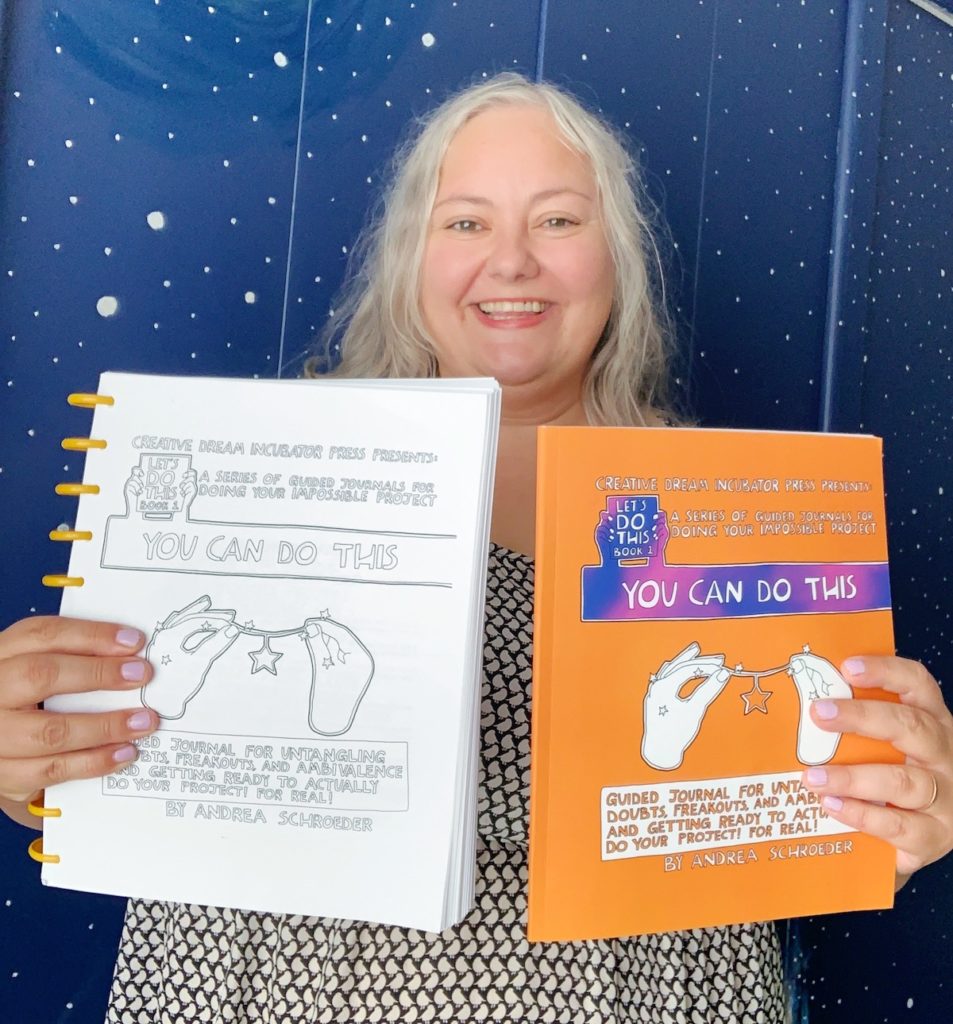 CREATIVE DREAM INCUBATOR PRESS PRESENTS:
LET'S
DO
THIS
BOOK 1
A SERIES OF GUIDED JOURNALS FOR
DOING YOUR IMPOSSIBLE PROJECT
YOU CAN DO THIS
JOURNAL FOR UNTANGLING
FREAKOUTS, AND AMBIVALENCE
AND GETTING READY TO ACTUALLY
DO YOUR PROJECT! FOR REAL!
BY ANDREA SCHROEDER
CREATIVE DREAM INCUBATOR PRESS PRESENTS:
LET'S
DO
THIS
BOOK 1
A SERIES OF GUIDED JOURNALS FOR
DOING YOUR IMPOSSIBLE PROJECT
YOU CAN DO THIS
GUIDED JOURNAL FOR
DOUBTS, FREAKOUTS, AND
AND GETTING READY TO
DO YOUR PROJECT! FOR REAL!
BY ANDREA SCHROEDER